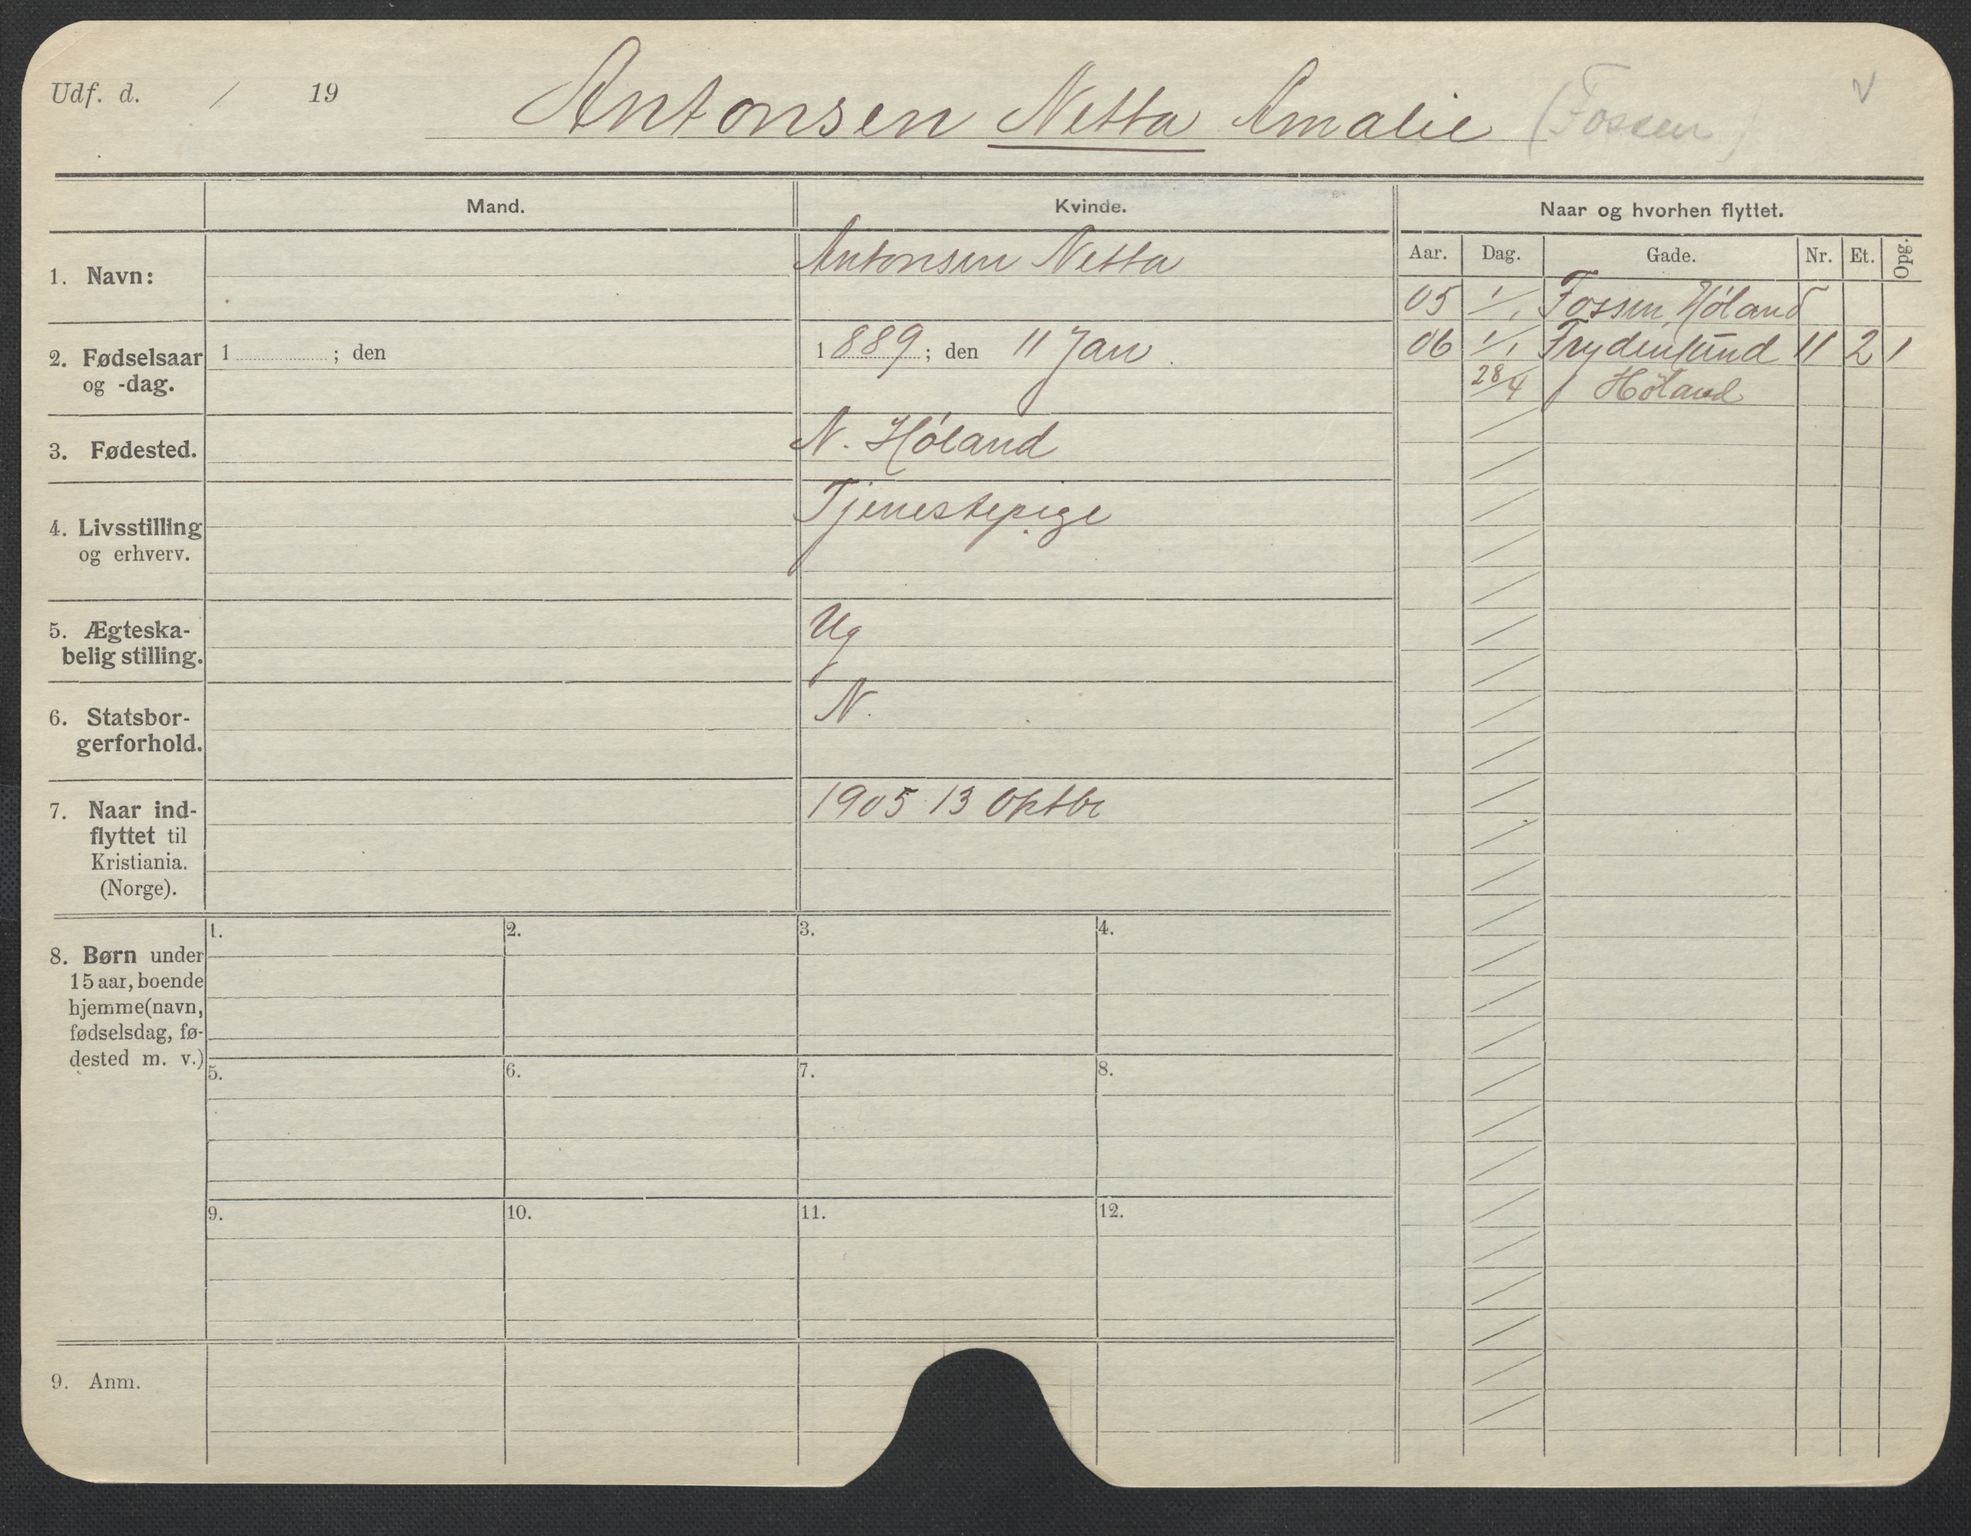 Udf. d. / 19
Antonsen Netta Amalie (Fossen) v
Mand.
Kvinde.
Naar og hvorhen flyttet.
Aar. Dag. Gade. Nr. Et. Opg.
1. Navn:
Antonsen Netta
05 1/1 Fossen, Høland
2. Fødselsaar
og -dag.
1 ; den
1889 ; den 11 Jan.
06 1/1 Frydenlund 11 2 1
28/4 Høland
3. Fødested.
N. Høland
4. Livsstilling
og erhverv.
Tjenestepige
5. Ægteska-
belig stilling.
Ug
6. Statsbor-
gerforhold.
N.
7. Naar ind-
flyttet til
Kristiania.
(Norge).
1905 13 Oktbr
8. Børn under
15 aar, boende
hjemme (navn,
fødselsdag, fø-
dested m. v.)
1. 2. 3. 4.
5. 6. 7. 8.
9. 10. 11. 12.
9. Anm.